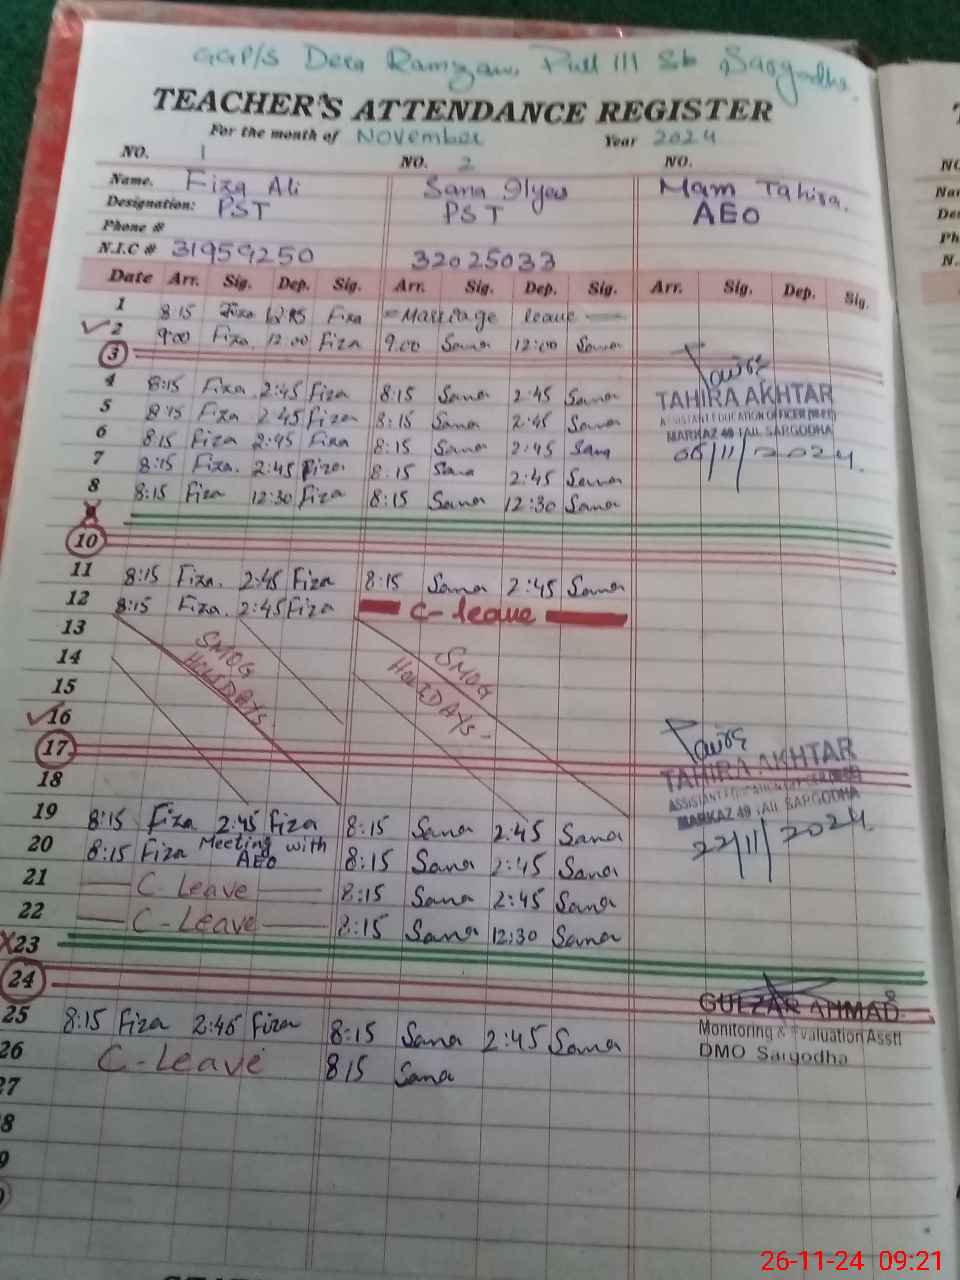 GGP/S Dera Ramzan, Pull 111 Sb Sargodha.
TEACHER'S ATTENDANCE REGISTER
For the month of November Year 2024
NO. 1 NO. 2 NO.
Name. Fiza Ali Sana Ilyas Mam Tahira.
Designation: PST PST AEO
Phone #
N.I.C # 31959250 32025033
Date Arr. Sig. Dep. Sig. Arr. Sig. Dep. Sig. Arr. Sig. Dep. Sig.
1 8:15 Fiza Fiza = Marriage leave
2 9:00 Fiza. 12:00 Fiza 9:00 Sana 12:00 Sana
3
4 8:15 Fiza 2:45 Fiza 8:15 Sana 2:45 Sana
TAHIRA AKHTAR
5 8:15 Fiza 2:45 Fiza 8:15 Sana 2:45 Sana
ASSISTANT EDUCATION OFFICER
6 8:15 Fiza 2:45 Fiza 8:15 Sana 2:45 Sana
MARKAZ 49 TAIL SARGODHA
7 8:15 Fiza. 2:45 Fiza. 8:15 Sana 2:45 Sana
06/11/2024.
8 8:15 Fiza 12:30 Fiza 8:15 Sana 12:30 Sana
10
11 8:15 Fiza. 2:45 Fiza 8:15 Sana 2:45 Sana
12 8:15 Fiza. 2:45 Fiza C-leave
13
14 SMOG HOLIDAYS SMOG HOLIDAYS-
15
16
17
TAHIRA AKHTAR
18
ASSISTANT EDUCATION OFFICER
19 8:15 Fiza 2:45 Fiza 8:15 Sana 2:45 Sana
MARKAZ 49 TAIL SARGODHA
20 8:15 Fiza Meeting with AEO 8:15 Sana 2:45 Sana
22/11/2024.
21 C. Leave 8:15 Sana 2:45 Sana
22 C-Leave 8:15 Sana 12:30 Sana
X23
24
GULZAR AHMAD
25 8:15 Fiza 2:45 Fiza 8:15 Sana 2:45 Sana
Monitoring & Evaluation Asstt
DMO Sargodha
26 C-Leave 815 Sana
27
8
9
26-11-24 09:21